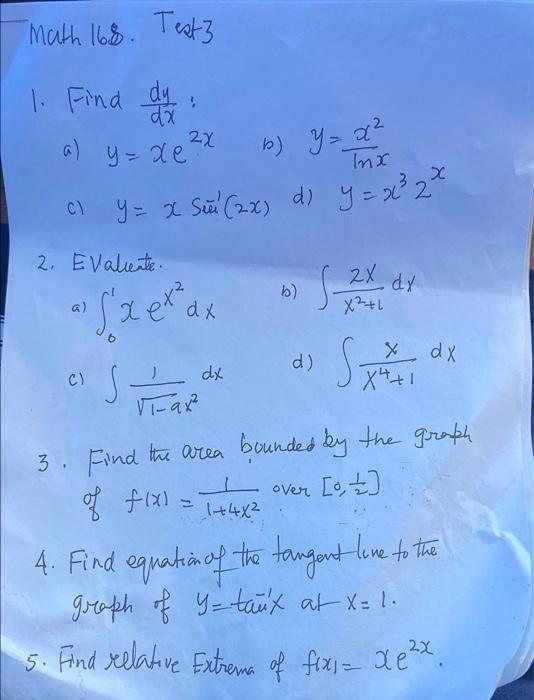 Math 168. Test 3
1. Find dy/dx :
a) y = xe^2x b) y = x^2/ln x
c) y = x Sin^-1(2x) d) y = x^3 2^x
2. Evaluate.
a) ∫_0^1 x e^x^2 dx b) ∫ 2x/(x^2+1) dx
c) ∫ 1/√(1-9x^2) dx d) ∫ x/(x^4+1) dx
3. Find the area bounded by the graph
of f(x) = 1/(1+4x^2) over [0, 1/2]
4. Find equation of the tangent line to the
graph of y = tan^-1 x at x = 1.
5. Find relative Extrema of f(x) = xe^2x.